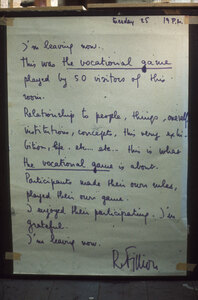 Tuesday 25 19 P.M.
I'm leaving now.
This was the vocational game
played by 50 visitors of this
room.
Relationship to people, things, oneself
institutions, concepts, this very exhi-
bition, life, etc... etc.. this is what
the vocational game is about.
Participants made their own rules,
played their own game.
I enjoyed their participating. I'm
grateful.
I'm leaving now.
R. Filliou